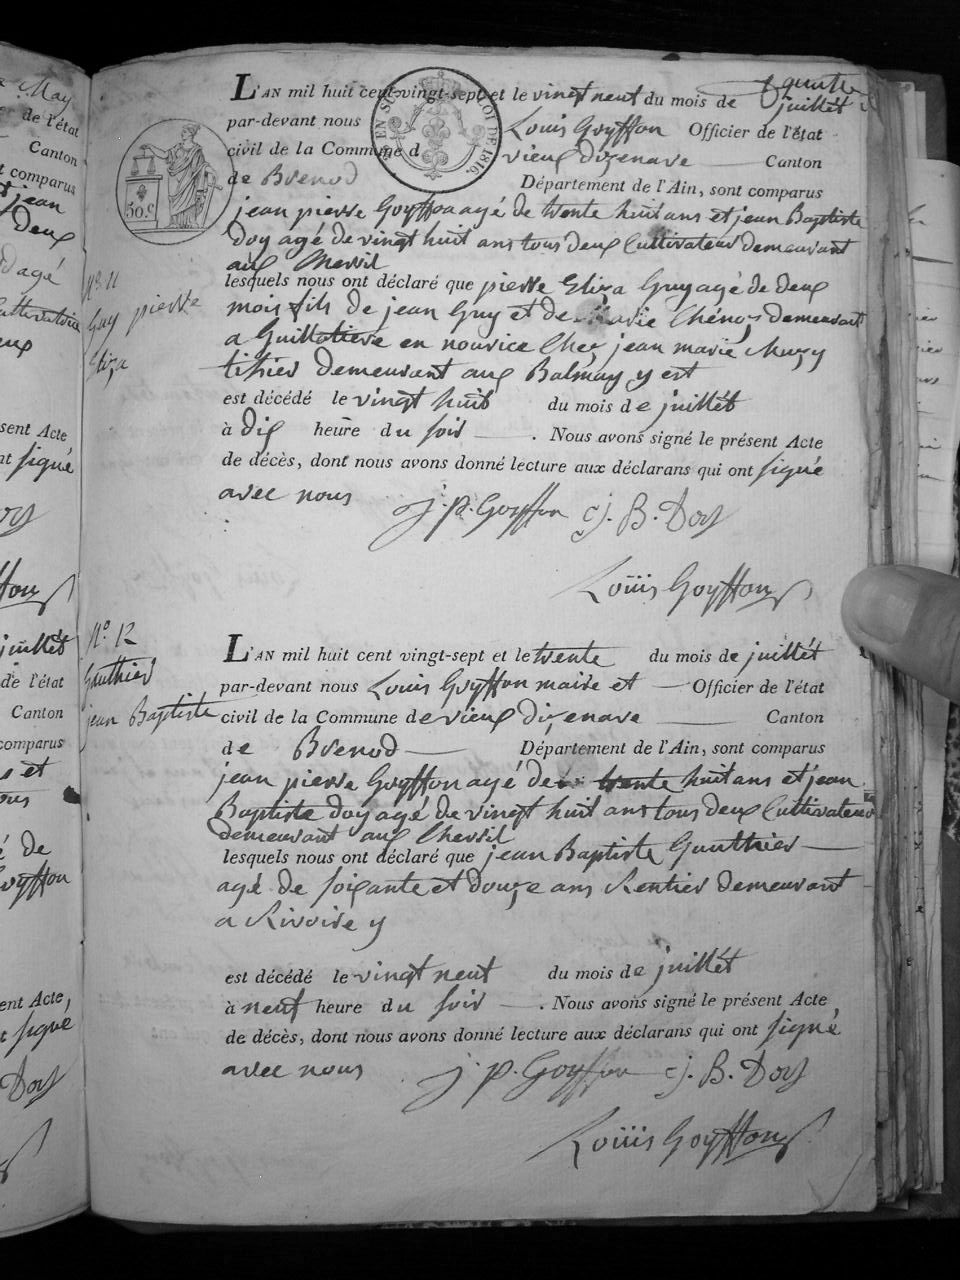 quatre
L'AN mil huit cent-vingt-sept et le vingt neuf du mois de juillet
par-devant nous Louis Goyffon Officier de l'état
civil de la Commune d vieux dizenave Canton
de Brenod Département de l'Ain, sont comparus
jean pierre Goyffon agé de trente huit ans et jean Baptiste
doy agé de vingt huit ans tous deux Cultivateur demeurant
aux Chevril
lesquels nous ont déclaré que pierre Eliza Guy agé de deux
mois fils de jean Guy et de marie demeurant
a Guillotiere en nourice Chez jean marie
tisier demeurant aux Balmay y est
est décédé le vingt huit du mois de juillet
à dix heure du soir . Nous avons signé le présent Acte
de décès, dont nous avons donné lecture aux déclarans qui ont signé
avec nous j. p. Goyffon j. B. Doy
Louis Goyffon
N° 11
Guy pierre
Eliza
EN SUS LOI DE 1816
50.C
N° 12
Gauthier
jean Baptiste
L'AN mil huit cent vingt-sept et le trente du mois de juillet
par-devant nous Louis Goyffon maire et Officier de l'état
civil de la Commune de vieux dizenave Canton
de Brenod Département de l'Ain, sont comparus
jean pierre Goyffon agé de trente huit ans et jean
Baptiste doy agé de vingt huit ans tous deux Cultivateur
demeurant aux Chevril
lesquels nous ont déclaré que jean Baptiste Gauthier
agé de soixante et douze ans Rentier demeurant
a Rivoire y
est décédé le vingt neuf du mois de juillet
à neuf heure du soir . Nous avons signé le présent Acte
de décès, dont nous avons donné lecture aux déclarans qui ont signé
avec nous j. p. Goyffon j. B. Doy
Louis Goyffon
May
de l'état
Canton
t comparus
jean
deux
agé
sent Acte
signé
juillet
de l'état
Canton
comparus
et
de
ent Acte,
signé
Doy